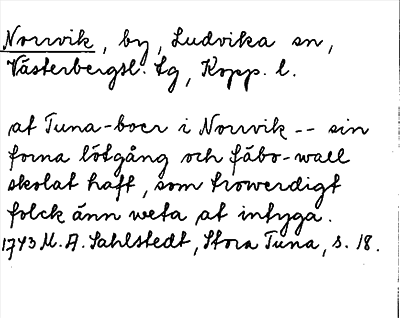 Norrvik, by, Ludvika sn,
Västerbergsl. lg, Kopp. l.
at Tuna-boer i Norrvik -- sin
forna lötgång och fäbo-wall
skolat haft, som trowerdigt
folck änn weta at intyga.
1743 M. A. Sahlstedt, Stora Tuna, s. 18.